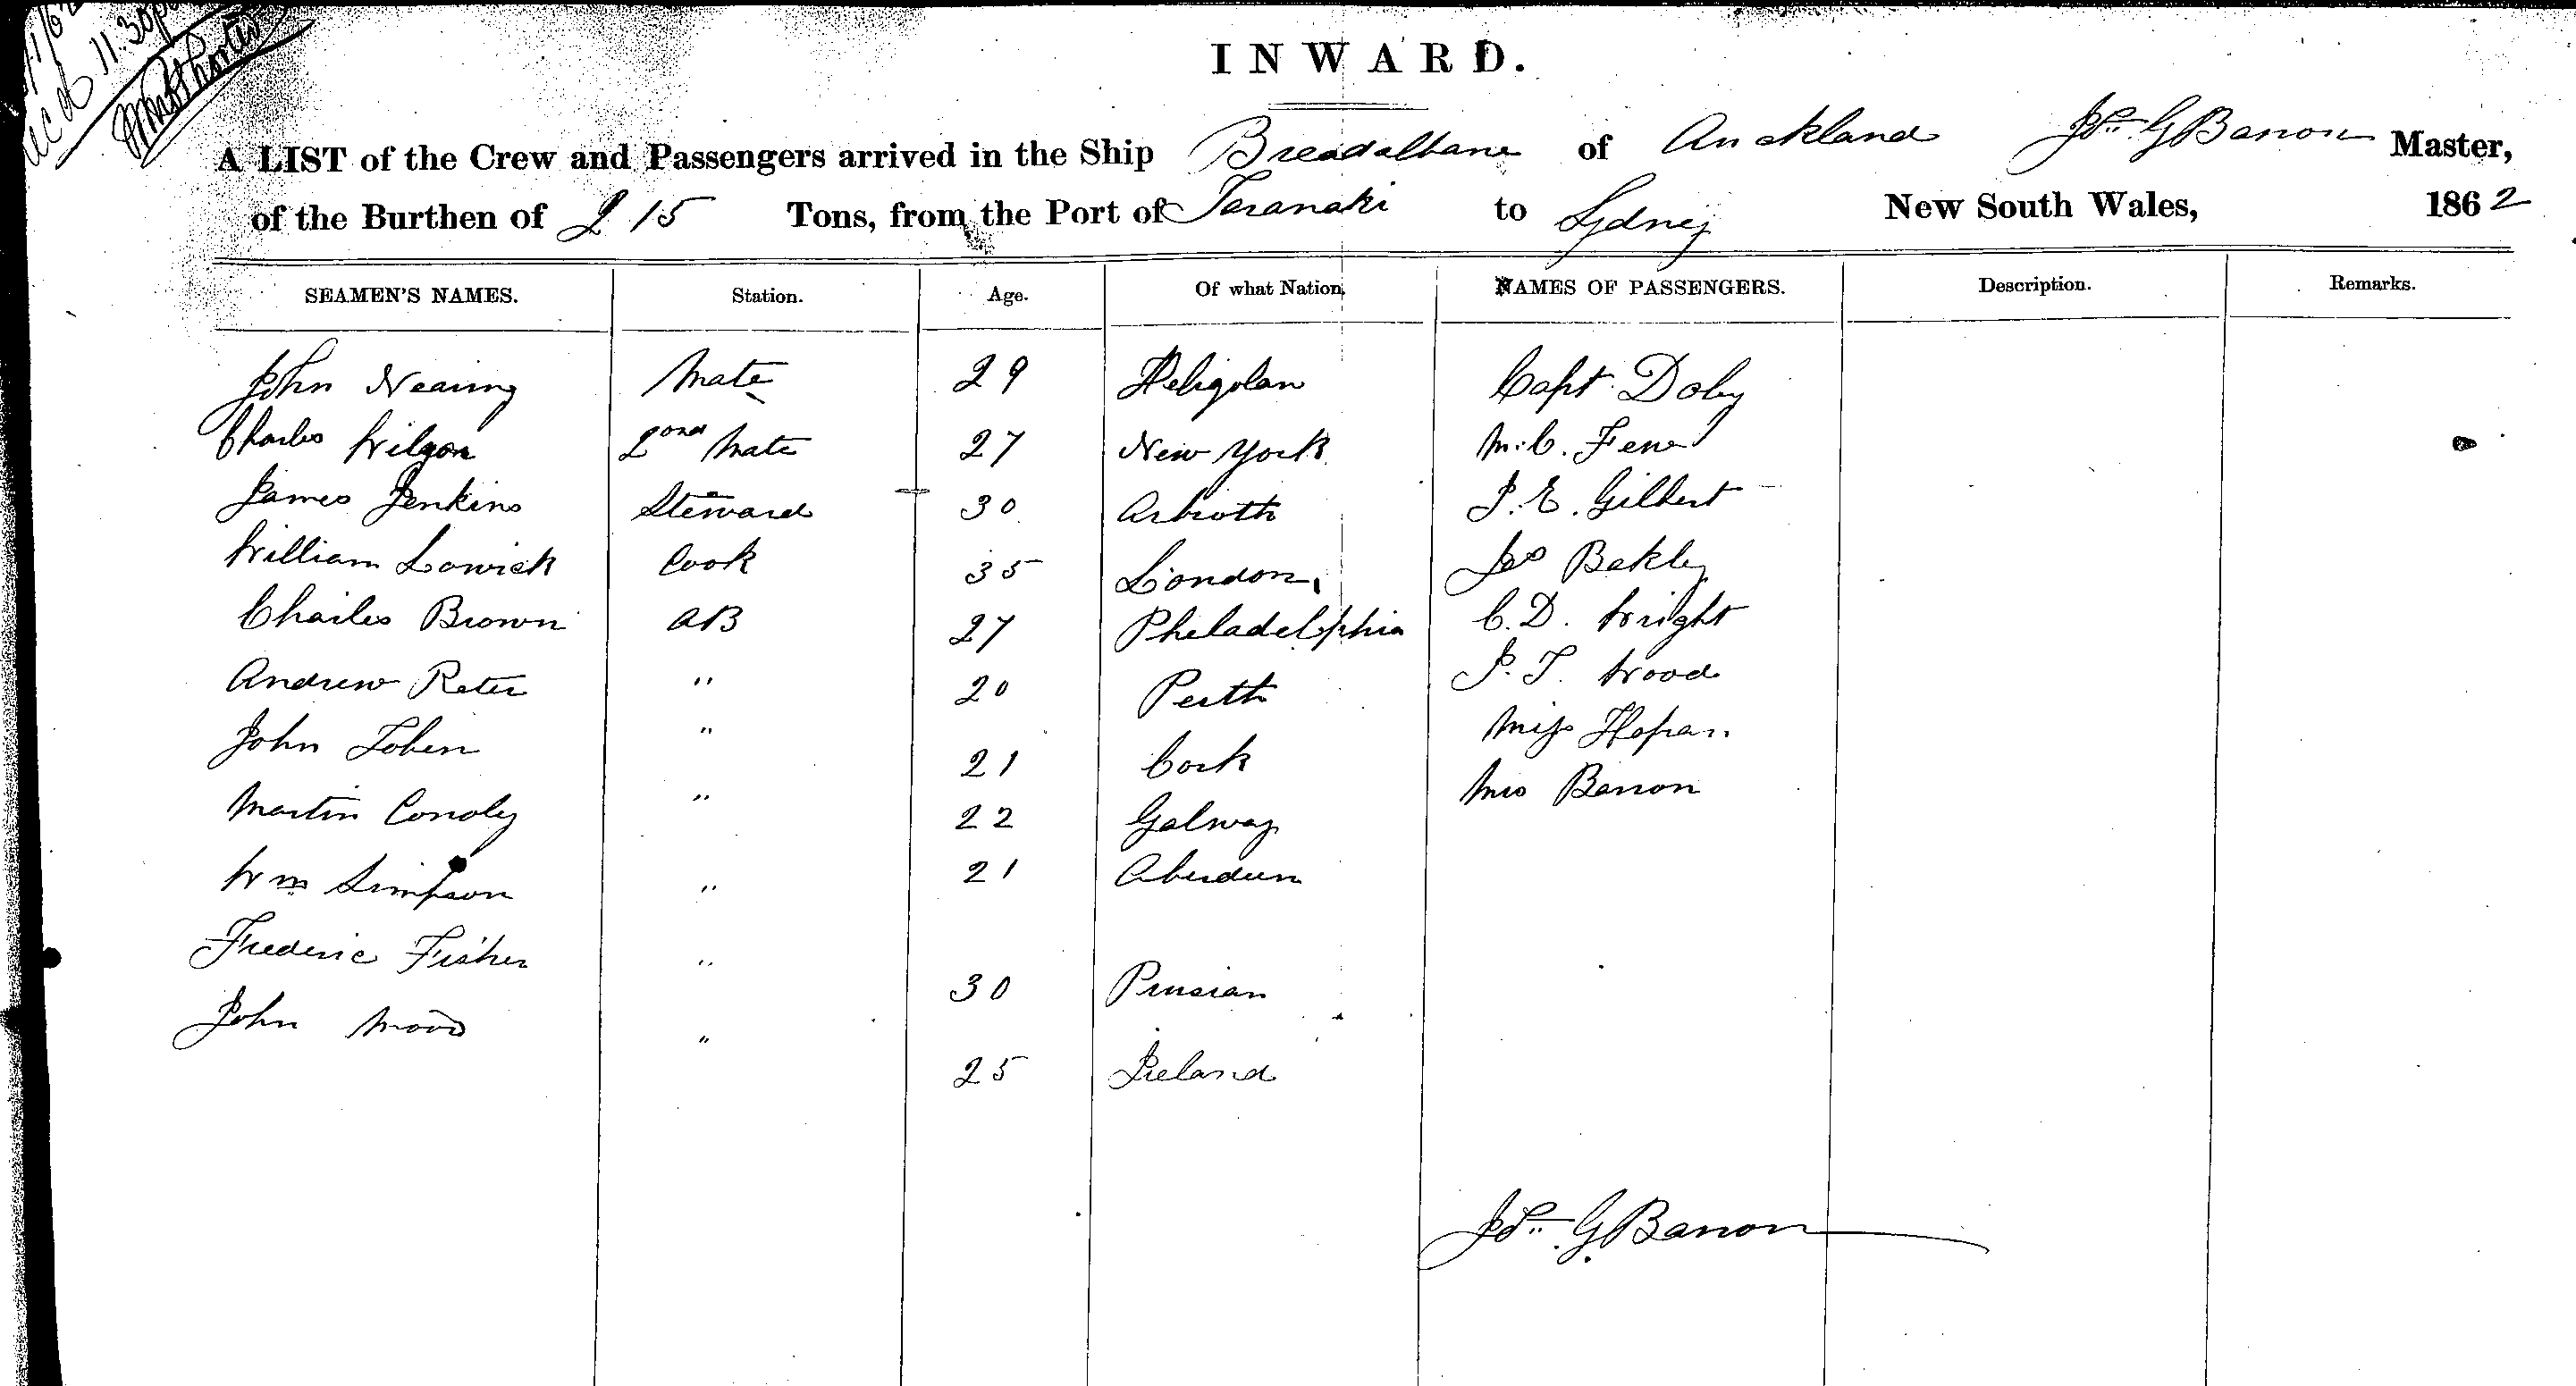 11.30pm
INWARD.
A LIST of the Crew and Passengers arrived in the Ship Breadalbane of Auckland Jn. G Barron Master,
of the Burthen of 215 Tons, from the Port of Taranaki to Sydney New South Wales, 1862
SEAMEN'S NAMES. Station. Age. Of what Nation. NAMES OF PASSENGERS. Description. Remarks.
John Mate 29 Heligolan Capt Doby
Charles Wilson 2ond Mate 27 New York M. C.
James Jenkins Steward 30 Arbroth J. E. Gilbert
William Lowick Cook 35 London Jas
Charles Brown AB 27 Pheladelphia C. D. Wright
Andrew Peter " 20 Perth J. T. Wood
John Toben " 21 Cork Miss
Martin Conoly " 22 Galway Mrs Barron
Wm Simpson " 21 Aberdeen
Frederic Fisher " 30 Prusian
John " 25 Ireland
Jn. G. Barron